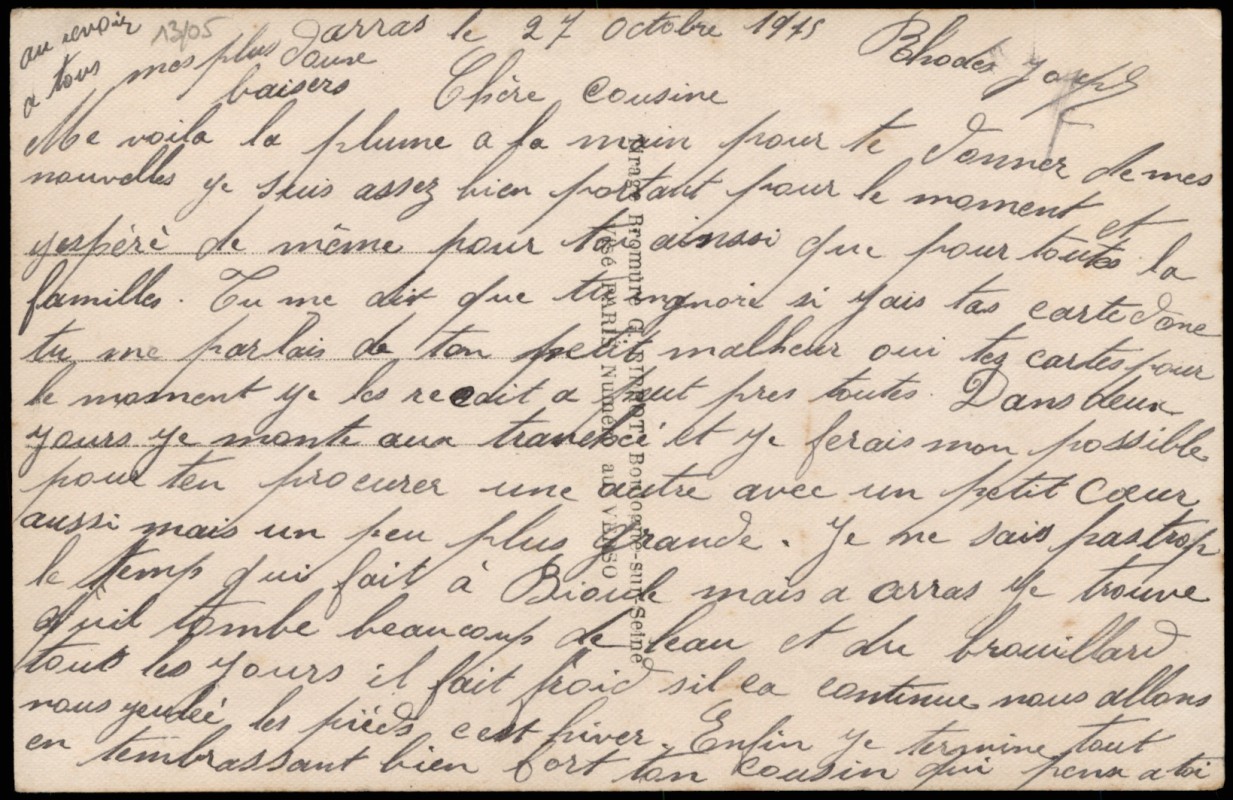 au revoir
a tous mes plus doux
baisers
13/05
arras le 27 Octobre 1915
Rhodes Joseph
Chère Cousine
Me voila la plume a la main pour te donner de mes
nouvelles ye suis assez bien portant pour le moment et
yespéré de même pour toi ainssi que pour toutes la
familles. Tu me dit que tu ingnore si yais tas carte donc
tu me parlais de ton petit malheur oui tez cartes pour
le moment ye les recoit a peut pres toutes. Dans deux
yours ye monte aux tranchéé et ye ferais mon possible
pour ten procurer une autre avec un petit Cœur
aussi mais un peu plus grande. Ye ne sais pas trop
le temp qui fait à Bioule mais a arras ye trouve
quil tombe beaucoup de leau et du brouillard
touts les yours il fait froid sil ca continue nous allons
nous yeulée les piéds cest hiver. Enfin ye termine tout
en tembrassant bien fort ton Cousin qui pensa a toi
Tirage Bromure G. PIPROT Boulogne-sur-Seine
Visé PARIS Numéro au VERSO